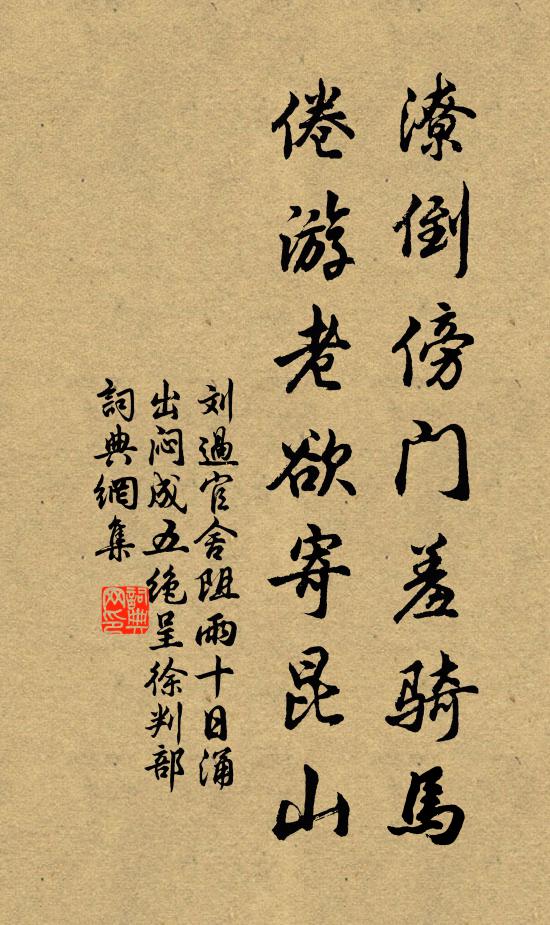 潦倒傍门羞骑馬
倦游老欲寄昆山
刘過官舍阻雨十日涌
出闷成五绝呈徐判部
詞典網集
詞典网印